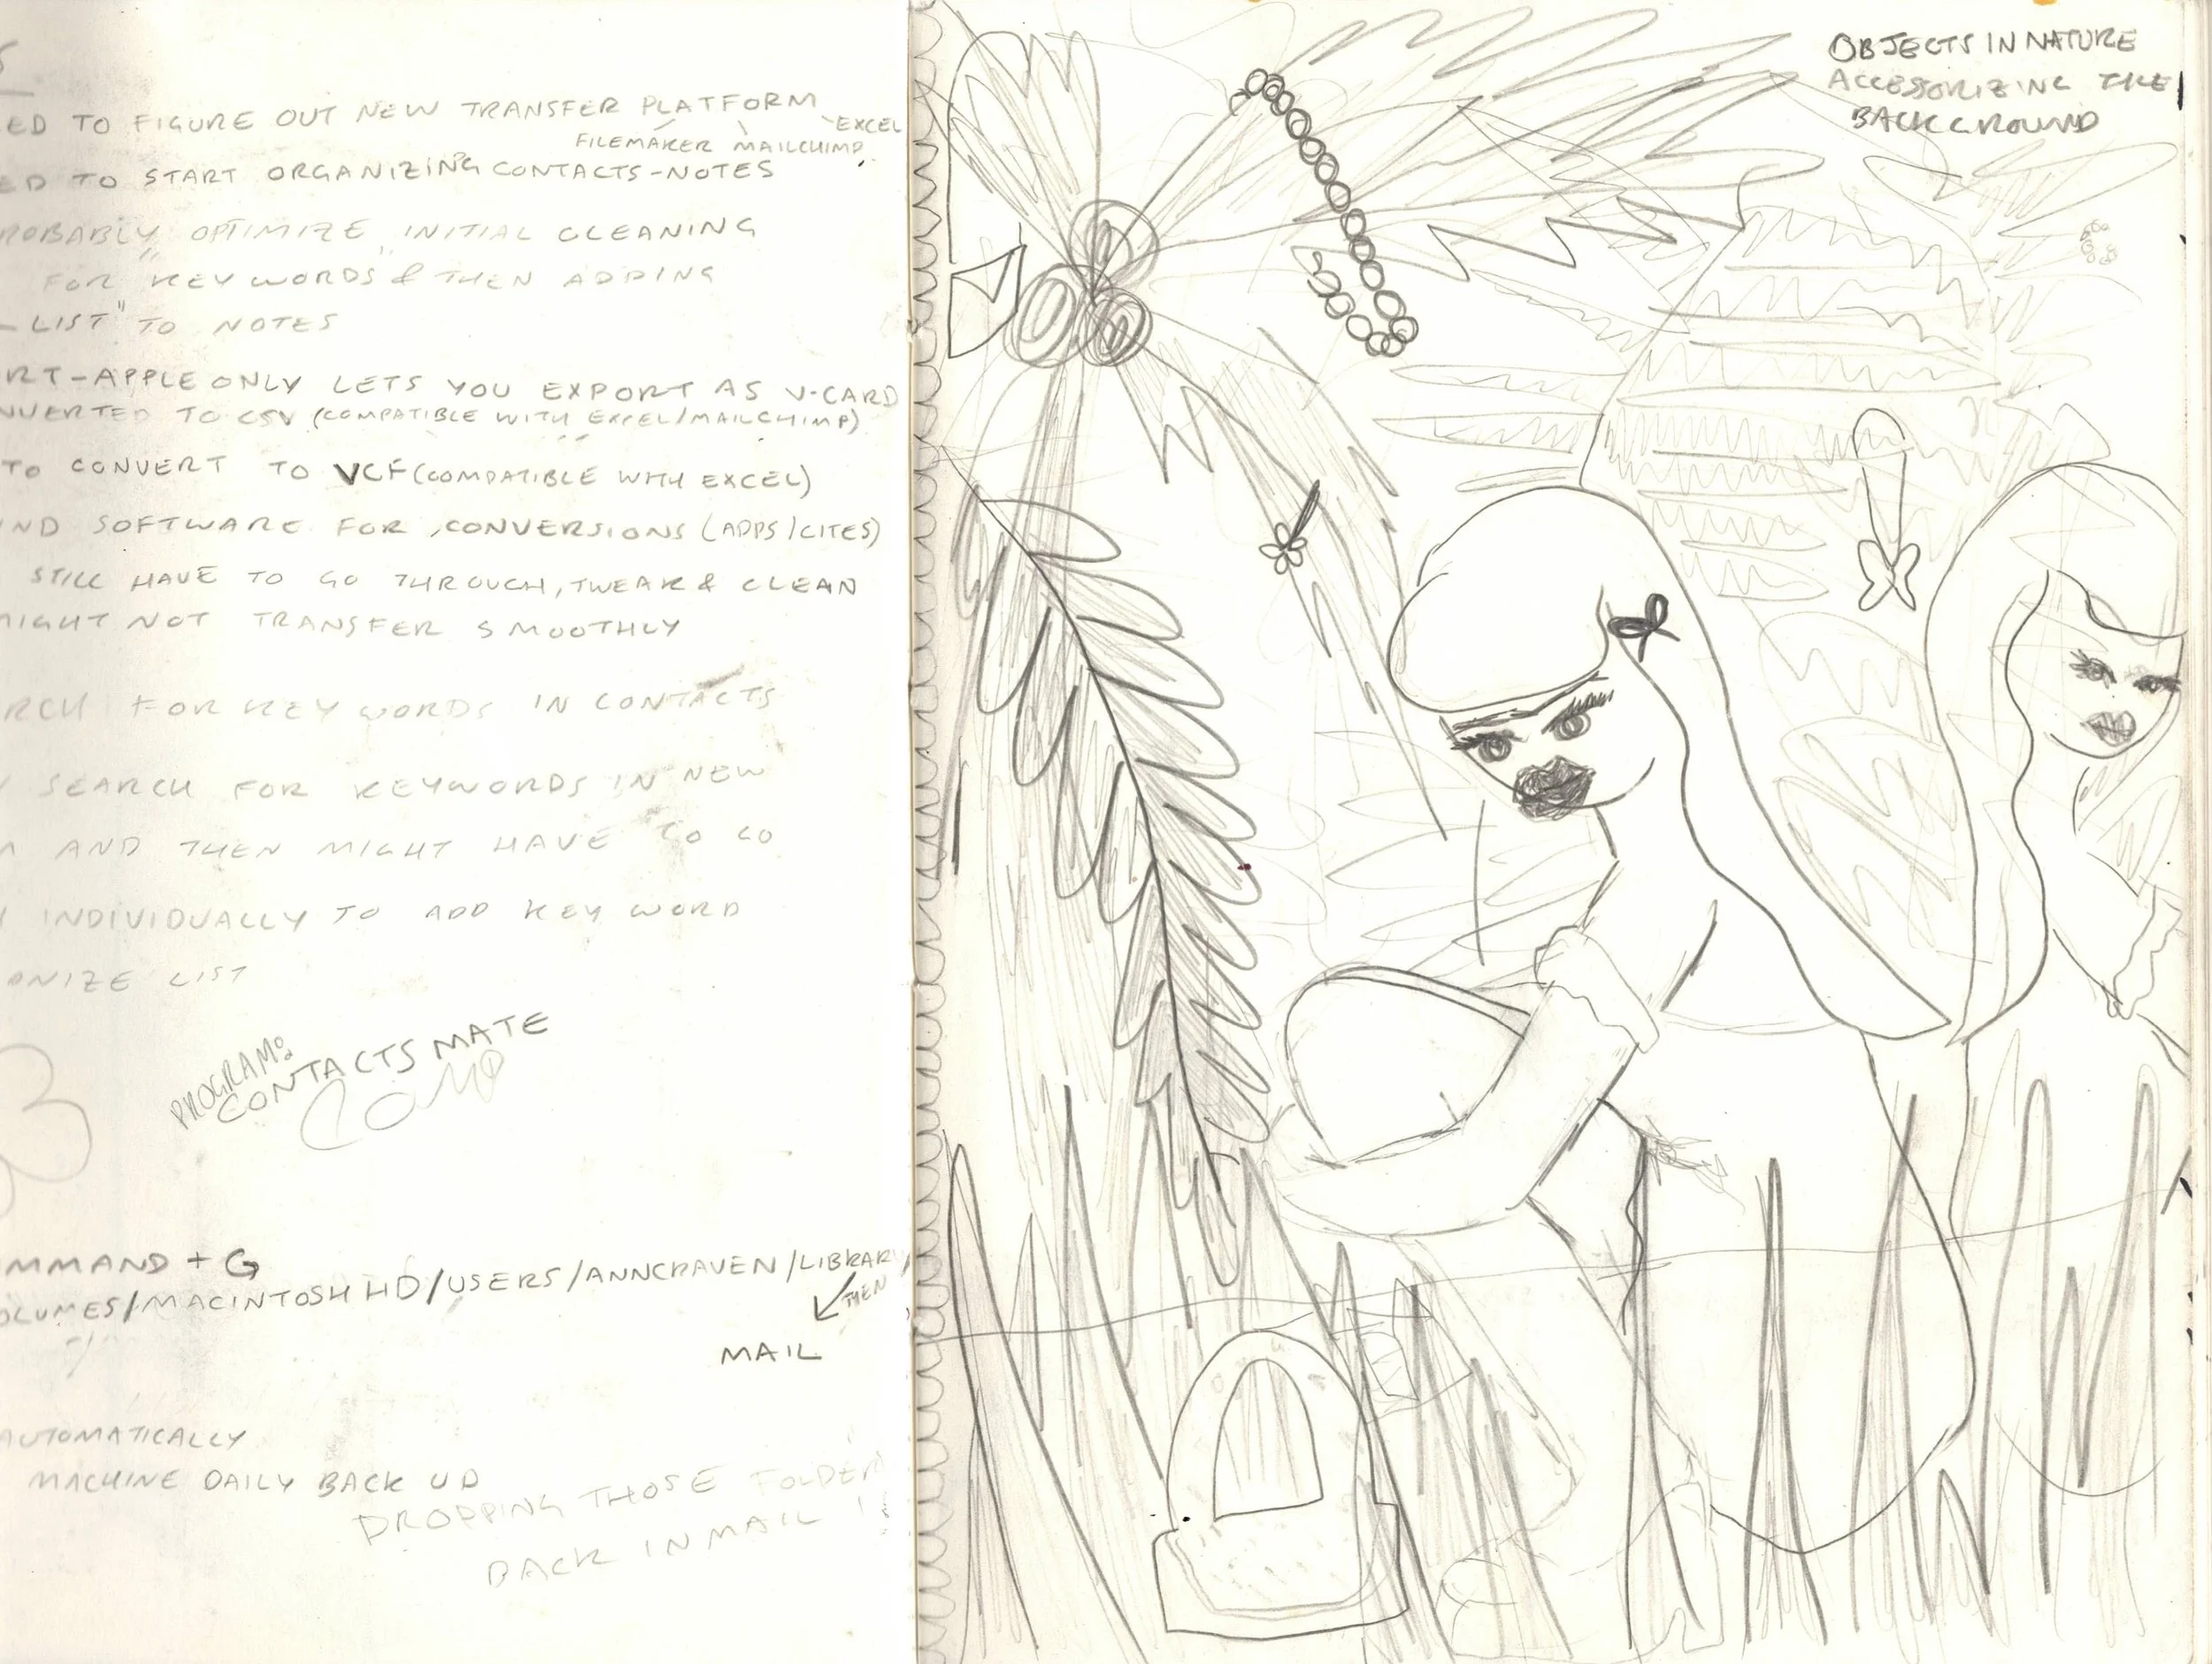 S
ED TO FIGURE OUT NEW TRANSFER PLATFORM
FILEMAKER MAILCHIMP EXCEL
ED TO START ORGANIZING CONTACTS-NOTES
ROBABLY "OPTIMIZE" INITIAL CLEANING
FOR "KEYWORDS & THEN ADDING
LIST" TO NOTES
RT-APPLE ONLY LETS YOU EXPORT AS V-CARD
NVERTED TO CSV (COMPATIBLE WITH EXCEL/MAILCHIMP)
TO CONVERT TO VCF (COMPATIBLE WITH EXCEL)
ND SOFTWARE FOR CONVERSIONS (APPS/CITES)
STILL HAVE TO GO THROUGH, TWEAK & CLEAN
MIGHT NOT TRANSFER SMOOTHLY
RCH FOR KEY WORDS IN CONTACTS
SEARCH FOR KEYWORDS IN NEW
AND THEN MIGHT HAVE TO GO
INDIVIDUALLY TO ADD KEY WORD
ANIZE LIST
PROGRAM:
CONTACTS MATE
OMMAND + G
OLUMES/MACINTOSH HD/USERS/ANNCRAVEN/LIBRARY/
THEN
MAIL
AUTOMATICALLY
MACHINE DAILY BACK UP
DROPPING THOSE FOLDER
BACK IN MAIL
OBJECTS IN NATURE
ACCESSORIZING THE
BACKGROUND